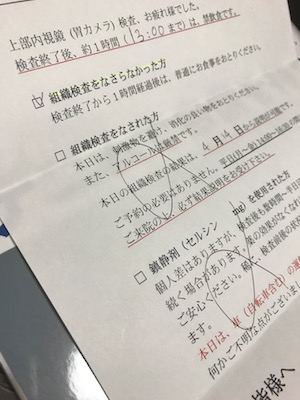 上部内視鏡（胃カメラ）検査、お疲れ様でした。
検査終了後、約1時間（13:00まで）は、禁飲食です。
☑ 組織検査をなさらなかった方
検査終了から1時間経過後は、普通にお食事をおとりください。
□ 組織検査をなされた方
本日は、刺激物を避け、消化の良い物をおとりください。
また、アルコールは厳禁です。
本日の組織検査の結果は、4月14日から説明が可能です。
ご予約の必要はありません。平日
ご来院の上、必ず結果説明をお受け下さい。
□ 鎮静剤（セルシン を使用された方
個人差はありますが、検査後も
続く場合があります。薬の効果がなくなれ
ご安心ください。稀に、検査前後の
ます。
本日は、車（自転車含む）の運
何かご不明な点がございまし
皆様へ